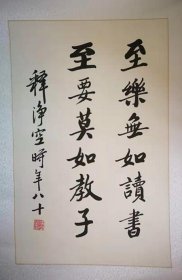 至樂無如讀書
至要莫如教子
釋淨空時年八十